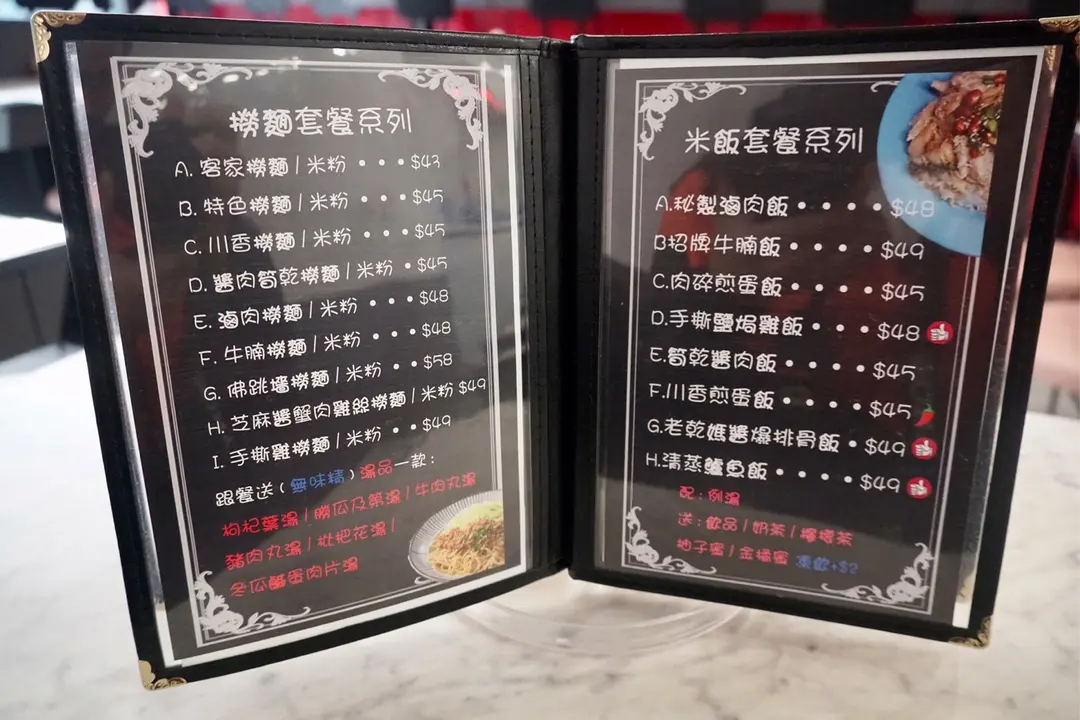 撈麵套餐系列
A. 客家撈麵/米粉 • • • $43
B. 特色撈麵/米粉 • • • $45
C. 川香撈麵/米粉 • • • $45
D. 醬肉筍乾撈麵/米粉 • $45
E. 滷肉撈麵/米粉 • • • $48
F. 牛腩撈麵/米粉 • • • $48
G. 佛跳墻撈麵/米粉 • • $58
H. 芝麻醬蟹肉雞絲撈麵/米粉 $49
I. 手撕雞撈麵/米粉 • • $49
跟餐送(無味精)湯品一款:
枸杞葉湯/勝瓜及第湯/牛肉丸湯
豬肉丸湯/枇杷花湯/
冬瓜鹹蛋肉片湯
米飯套餐系列
A.秘製滷肉飯 • • • • $48
B招牌牛腩飯 • • • • $49
C.肉碎煎蛋飯 • • • • $45
D.手撕鹽焗雞飯 • • • $48
E.筍乾醬肉飯 • • • • $45
F.川香煎蛋飯 • • • • $45
G.老乾媽醬爆排骨飯 • $49
H.清蒸鱸魚飯 • • • • $49
配:例湯
送:飲品/奶茶/檸檬茶
柚子蜜/金橘蜜 凍飲+$2